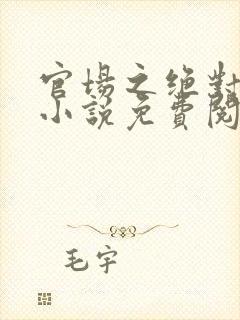 官場之絕對
小說免費閱
毛宇